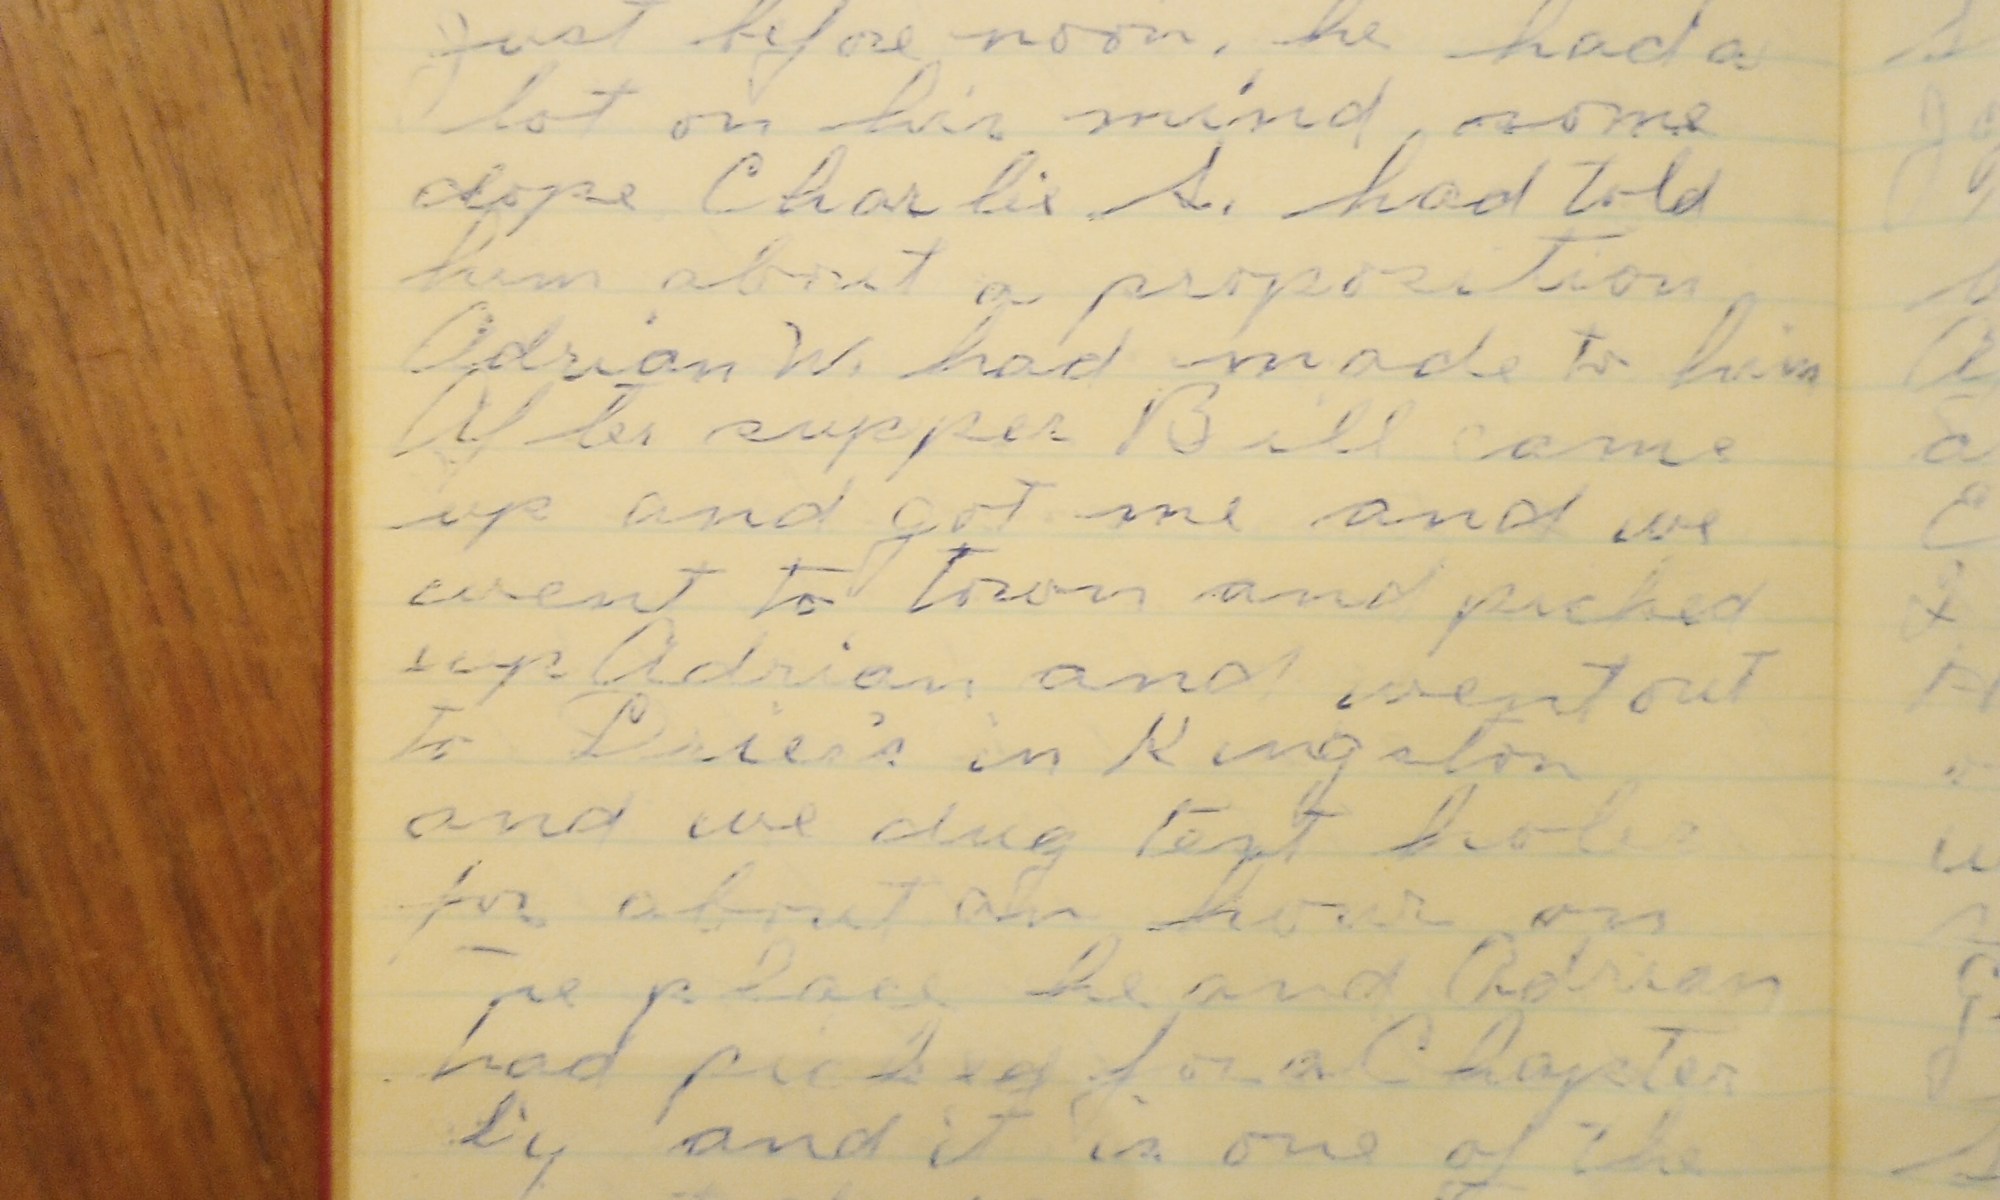 just before noon, he had a
lot on his mind, some
dope Charlie S. had told
him about a proposition
Adrian W. had made to him
After supper Bill came
up and got me and we
went to town and picked
up Adrian and went out
to in Kingston
and we dug test holes
for about an hour on
place he and Adrian
had picked for a Chapter
and it is one of the